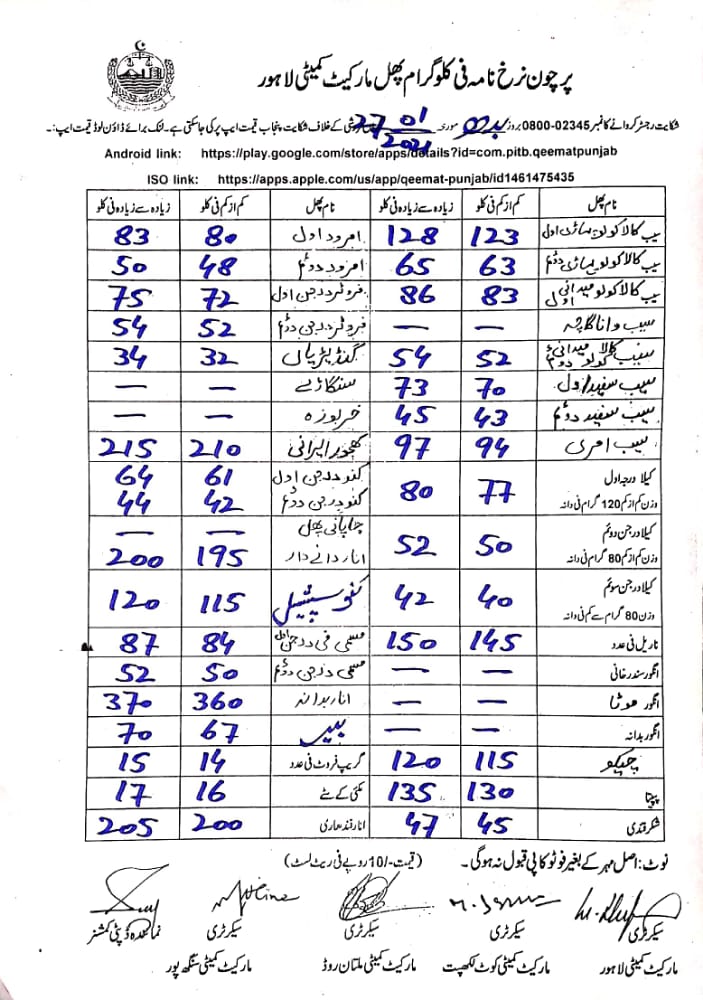 پرچون نرخ نامہ فی کلوگرام پھل مارکیٹ کمیٹی لاہور
شکایت رجسٹر کروانے کا نمبر 02345-0800 بروز بدھ مورخہ 27-01-2021 کے خلاف شکایت پنجاب قیمت ایپ پر کی جاسکتی ہے۔ لنک برائے ڈاؤن لوڈ قیمت ایپ:۔
Android link: https://play.google.com/store/apps/details?id=com.pitb.qeematpunjab
ISO link: https://apps.apple.com/us/app/qeemat-punjab/id1461475435
نام پھل کم از کم فی کلو زیادہ سے زیادہ فی کلو نام پھل کم از کم فی کلو زیادہ سے زیادہ فی کلو
سیب کالا کولو پہاڑی اول 123 128 امرود اول 80 83
سیب کالا کولو پہاڑی دوئم 63 65 امرود دوئم 48 50
سیب کالا کولو میدانی اول 83 86 فروٹر درجن اول 72 75
سیب وانا گاچہ — — فروٹر درجن دوئم 52 54
سیب کالا کولو میدانی دوئم 52 54 گنڈیریاں 32 34
سیب سفید اول 70 73 سنگاڑے — —
سیب سفید دوئم 43 45 خربوزہ — —
سیب امری 94 97 کھجور ایرانی 210 215
کیلا درجہ اول 77 80 کنو درجن اول 61 64
وزن کم از کم 120 گرام فی دانہ کنو درجن دوئم 42 44
کیلا درجن دوئم 50 52 جاپانی پھل — —
وزن کم از کم 80 گرام فی دانہ انار دانے دار 195 200
کیلا درجن سوئم 40 42 کنو سپیشل 115 120
وزن 80 گرام سے کم فی دانہ
ناریل فی عدد 145 150 مسمی فی درجن اول 84 87
انگور سندرخانی — — مسمی درجن دوئم 50 52
انگور موٹا — — انار بدانہ 360 370
انگور بدانہ — — بیر 67 70
چیکو 115 120 گریپ فروٹ فی عدد 14 15
پپیتا 130 135 مکئی کے سٹے 16 17
شکر قندی 45 47 انار قندھاری 200 205
نوٹ: اصل مہر کے بغیر فوٹو کاپی قبول نہ ہوگی۔ (قیمت -/10 روپے فی ریٹ لسٹ)
سیکرٹری سیکرٹری سیکرٹری سیکرٹری نمائندہ ڈپٹی کمشنر
مارکیٹ کمیٹی لاہور مارکیٹ کمیٹی کوٹ لکھپت مارکیٹ کمیٹی ملتان روڈ مارکیٹ کمیٹی سنگھ پور